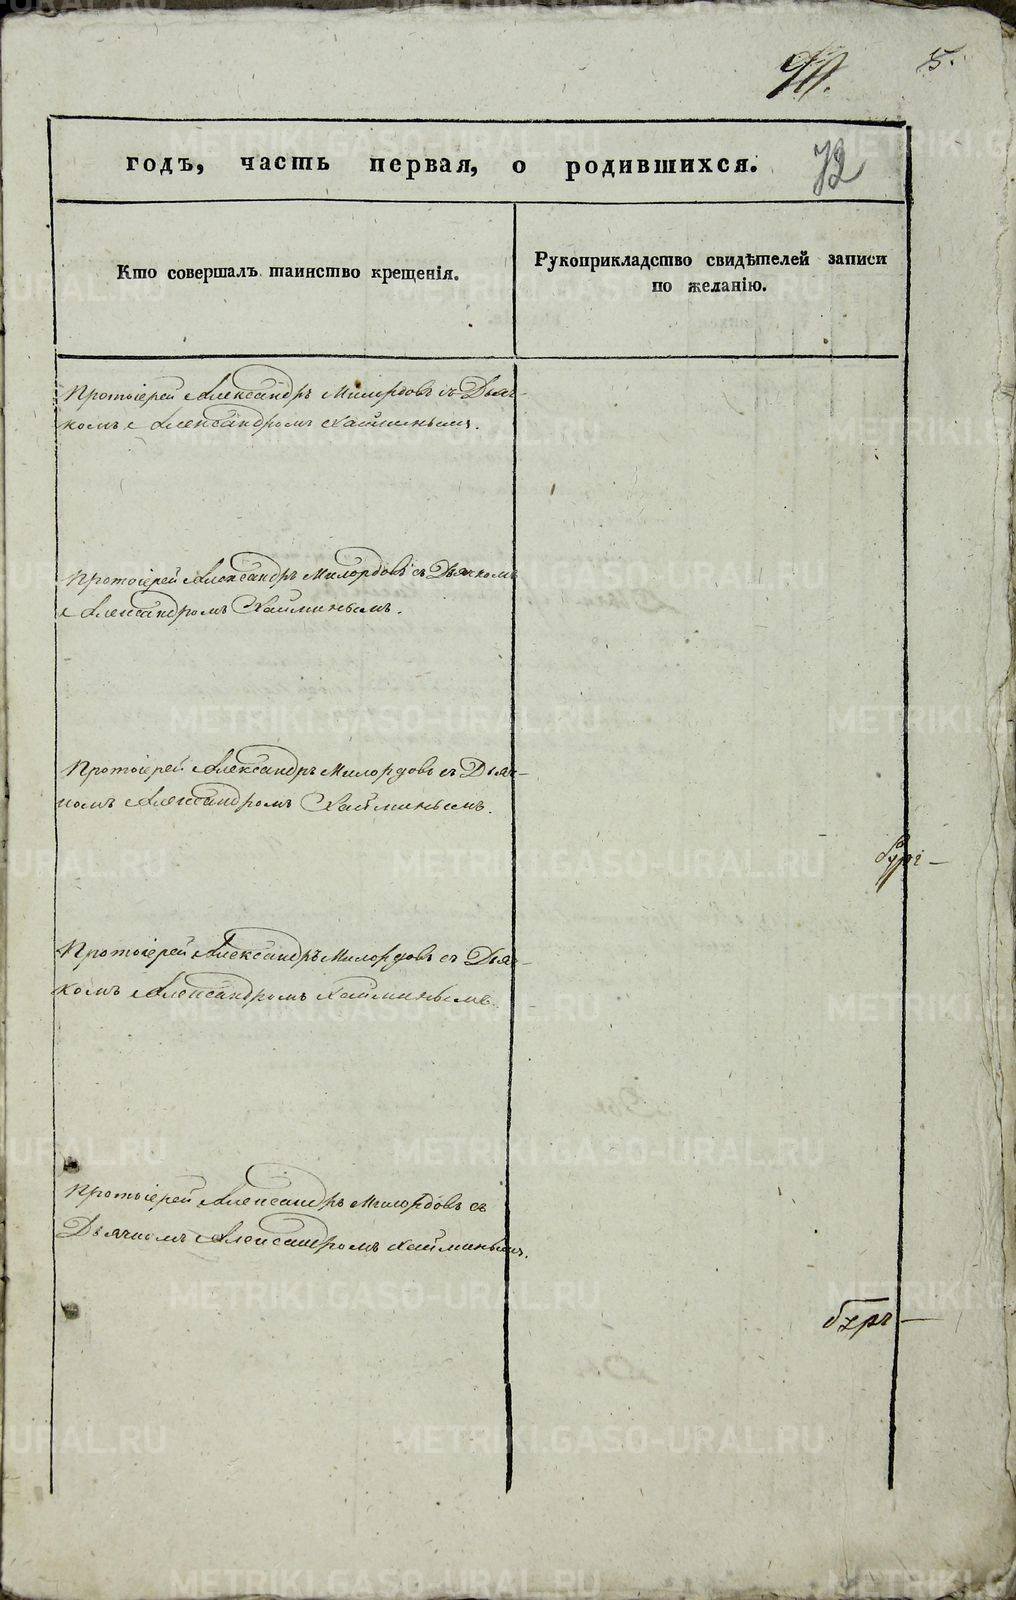 5.
годъ, часть первая, о родившихся. 72
Кто совершалъ таинство крещенія.
Рукоприкладство свидѣтелей записи
по желанію.
Протоіерей Александръ Милордовъ съ Дьяч-
комъ Александромъ Хайминымъ.
Протоіерей Александръ Милордовъ съ Дьячкомъ
Александромъ Хайминымъ.
Протоіерей Александръ Милордовъ съ Дьяч-
комъ Александромъ Хайминымъ.
Протоіерей Александръ Милордовъ съ Дьяч-
комъ Александромъ Хайминымъ.
Протоіерей Александръ Милордовъ съ
Дьячкомъ Александромъ Хайминымъ.
METRIKI.GASO-URAL.RU